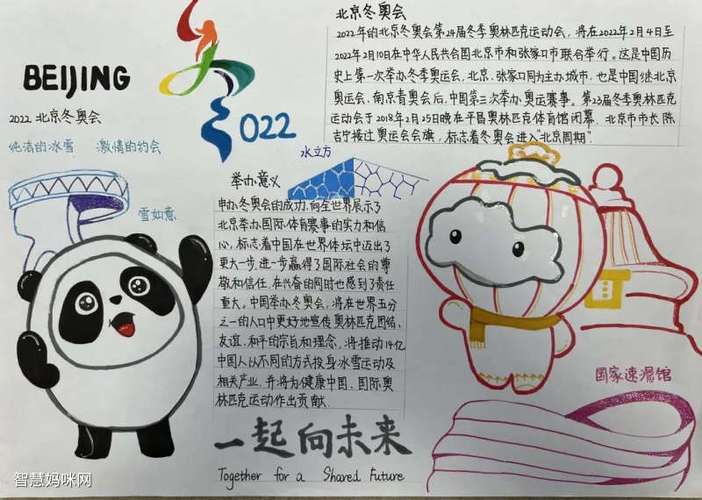 BEIJING
2022 北京冬奥会
纯洁的冰雪 激情的约会
2022
北京冬奥会
2022年的北京冬奥会第24届冬季奥林匹克运动会，将在2022年2月4日至
2022年2月10日在中华人民共合国北京市和张家口市联合举行。这是中国历
史上第一次举办冬季奥运会，北京、张家口同为主办城市，也是中国继北京
奥运会、南京青奥会后，中国第三次举办奥运赛事。第23届冬季奥林匹克
运动会于2018年2月25日晚在平昌奥林匹克体育馆闭幕，北京市市长陈
吉宁接过奥运会会旗，标志着冬奥会进入“北京周期”。
水立方
雪如意
举办意义
申办冬奥会的成功，向全世界展示了
北京举办国际体育赛事的实力和信
心，标志着中国在世界体坛中迈出了
更大一步，进一步赢得了国际社会的尊
敬和信任，在兴奋的同时也感到了责任
重大。中国举办冬奥会，将在世界五分
之一的人口中更好地宣传奥林匹克团结、
友谊、和平的宗旨和理念，将推动14亿
中国人以不同的方式投身冰雪运动及
相关产业，并将为健康中国、国际奥
林匹克运动作出贡献.
国家速滑馆
一起向未来
Together for a Shared Future
智慧妈咪网